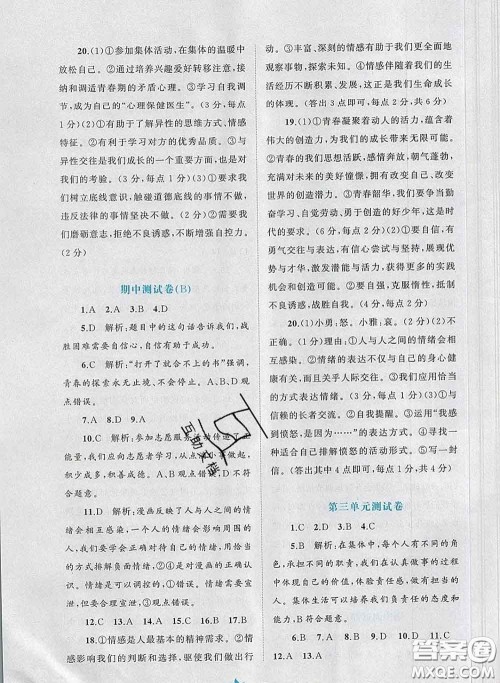 20.(1)①参加集体活动,在集体的温暖中
放松自己。②通过培养兴趣爱好转移注意,接纳
和调适青春期的矛盾心理。③学习自我调节,
成为自己的“心理保健医生”。(3分,每点1
分)(2)①有助于了解异性的思维方式、情绪
特征。②有利于学习对方的优秀品质。③与
异性交往是我们成长的一个重要方面,是对我
们的考验。(3分,每点1分)(3)①需要我
们树立底线意识,触碰道德底线的事情不做,
违反法律的事情坚决不做。(2分)②需要我
们磨砺意志,拒绝不良诱惑,不断增强自控力。
(2分)
期中测试卷(B)
1.A 2.A 3.B 4.D
5.D 解析:题目中的这句话告诉我们,战
胜困难需要自信心,自信有助于成功。
6.C 解析:“打开了就合不上的书”强调,
青春的探索永无止境,不会停止。A、B、D观点
错误。
7.A 8.D 9.A
10.C 解析:参加志愿服务活动传递了正
能量,我们要在生活中不断创造美好的情感体
验,积少成多,积善成德。A、B观点错误,D不
符合题意。
11.D 解析:漫画反映了人与人之间的情
绪会相互感染,一个人的情绪会影响周围的
人,我们要学会正确对待自己的情绪,用恰当
的方式排解负面情绪。②是对漫画的正确认
识。情绪是可以调控的,①错误。情绪需要宣
泄,但要合理宣泄,③观点错误。
12.C 13.C 14.A 15.C 16.B 17.B
18.①情感是人最基本的精神需求。②情
感影响我们的判断和选择,驱使我们做出行
动。③丰富、深刻的情感有助于我们更全面地
观察事物,探索未知。④情感伴随我们的生
活经历不断积累、发展,这就是我们生命成长
的体现。(答出3点即可,每点2分,共6分)
19.(1)①青春凝聚着动人的活力,蕴含着
伟大的创造力,为我们的成长带来无限可能。
②青春的我们思想活跃,感情奔放,朝气蓬勃,
充满着对未来的美好憧憬,拥有改变自己、改变
世界的创造潜力。③青春韶华,我们应当争做
勤奋学习、自觉劳动、勇于创造的好少年。(4
分,每点2分)(2)①要自信,有
勇气交往与表达,有信心尝试与坚持,展现优
势与才华,激发潜能与活力,获得更多的实践
机会与创造可能。②要自强,克服惰性,抵制
不良诱惑,战胜自我。(4分,每点2分)
20.(1)小勇:怒。小雅:哀。(2分)(2)不
正确。(1分)理由:①人与人之间的情绪会相
互感染。②情绪的表达不仅与自己的身心健
康有关,而且关乎人际交往。③我们应用恰当
的方式表达情绪。(每点1分,共3分)(3)①与
信赖的长者交流。②自我提醒。③运用“我感
到愤怒,是因为……”的表达方式。④寻找一
种适合自己合理解愤怒的活动等。(符合题意
即可,每点1分,共4分)
第三单元测试卷
1.C 2.B 3.C 4.C
5.B 解析:在集体中,每个人有不同的角
色,承担不同的职责,我们在认真做事的过程中
体验责任感,在自己的付出给他人带来快乐时
增强责任感。集体生活可以培养我们负责任的
态度和能力。
6.B 7.B 8.A 9.C 10.D 11.C
12.A 13.A
互助文档
答案